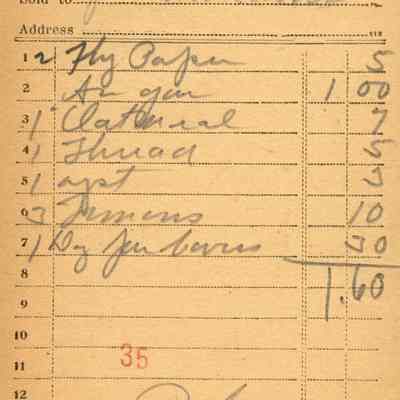 Sold to
Address
1 2 Fly Paper 5
2 Sugar 1 00
3 1 Oatmeal 7
4 1 Thread 5
5 1 3
6 3 Lemons 10
7 1 Doz Jar covers 30
8 1.60
9
10
35
11
12